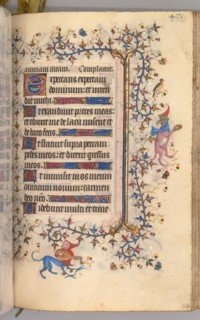 animam meam. Complaint.
Expectans expectavi
dominum: et inten
dit michi.
Et exaudivit preces meas:
et eduxit me de lacu miserie et
de luto fecis.
Et statuit supra petram
pedes meos: et direxit gressus
meos.
Et inmisit in os meum
canticum novum: carmen
deo nostro.
Videbunt multi et time